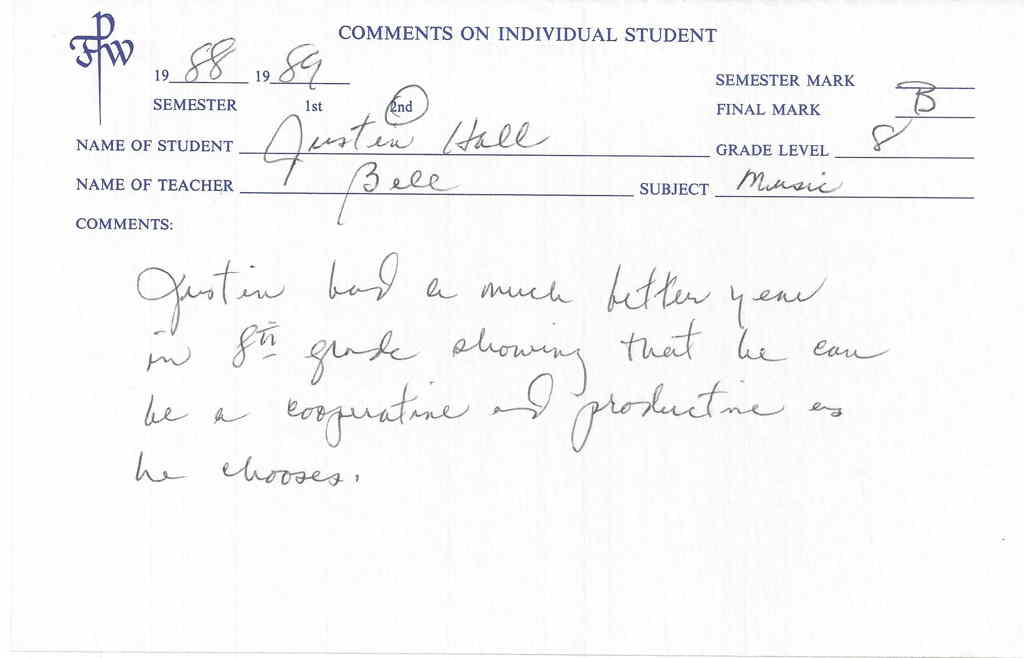 FPW
COMMENTS ON INDIVIDUAL STUDENT
19 88 19 89
SEMESTER MARK
SEMESTER 1st 2nd
FINAL MARK B
NAME OF STUDENT Justin Hall
GRADE LEVEL 8
NAME OF TEACHER Bell SUBJECT Music
COMMENTS:
Justin had a much better year
in 8th grade showing that he can
be a cooperative and productive as
he chooses.